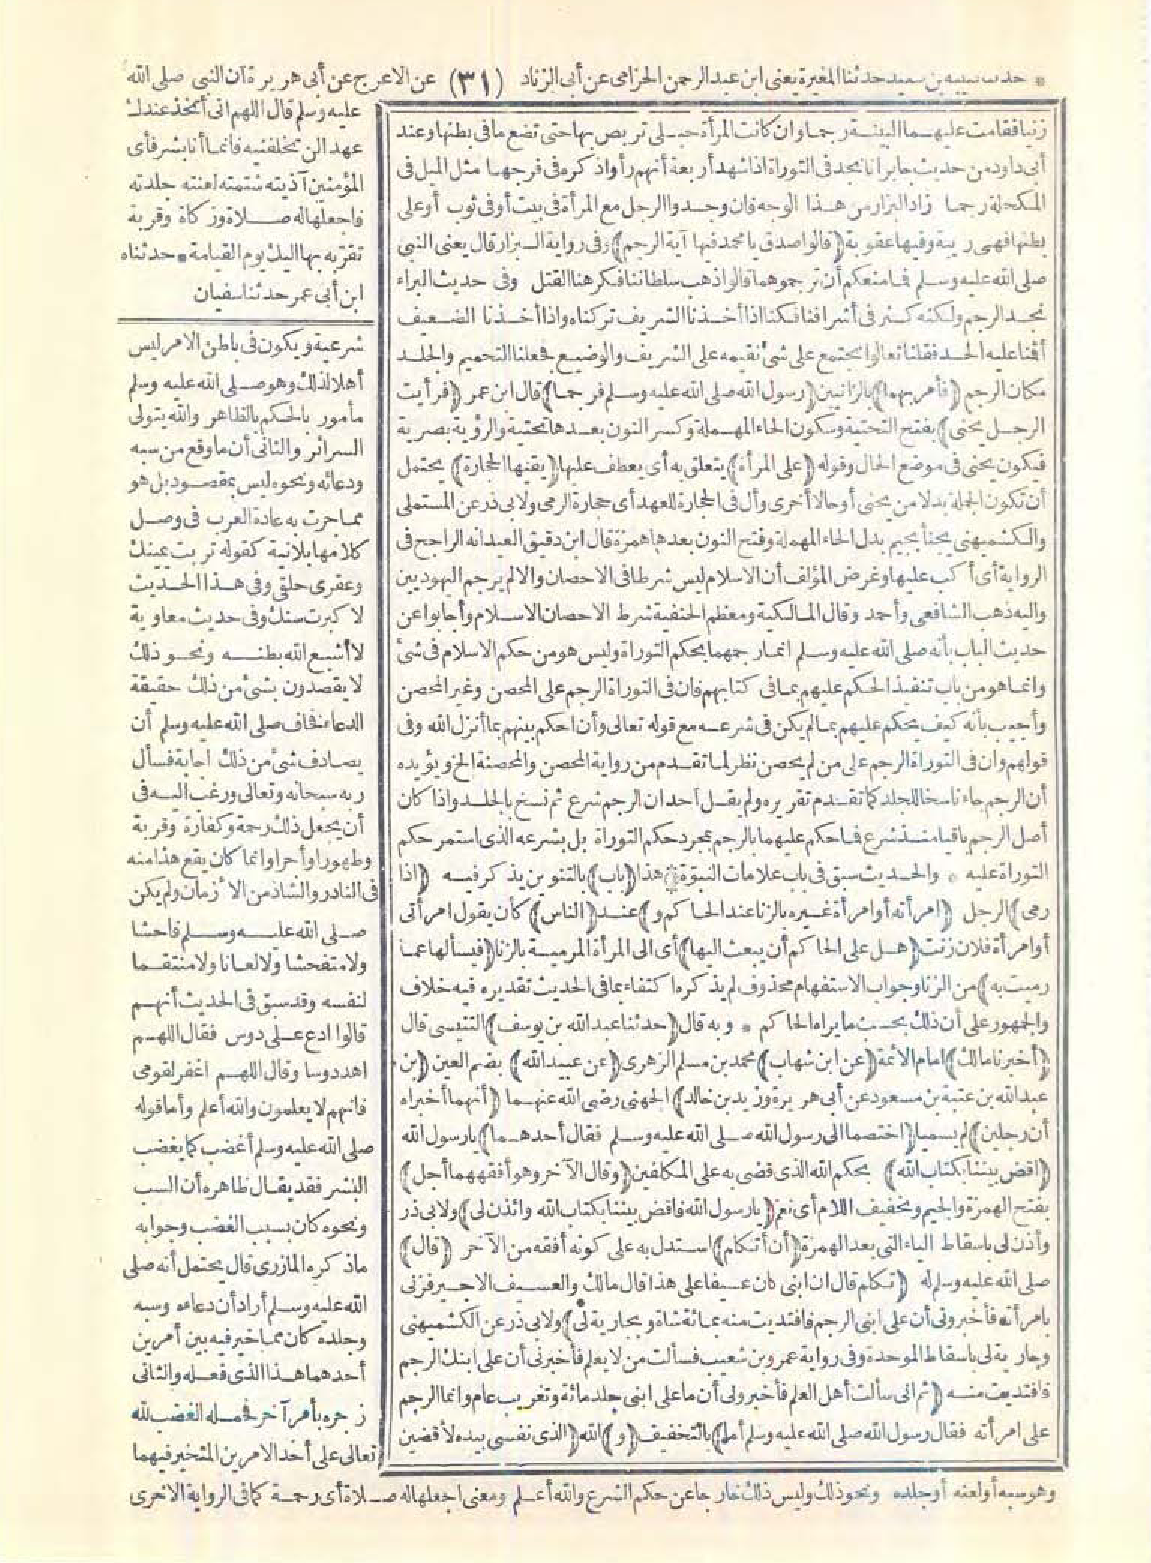 * حدثنا قتيبة بن سعيد حدثنا المغيرة يعنى ابن عبد الرحمن الحزامى عن أبى الزناد (٣١) عن الاعرج عن أبى هريرة أن النبى صلى الله
عليه وسلم قال اللهم انى أتخذ عندك
عهدا لن تخلفنيه فانما أنا بشر فأى
المؤمنين آذيته شتمته لعنته جلدته
فاجعلها له صلاة وزكاة وقربة
تقربه بها اليك يوم القيامة * حدثناه
ابن أبى عمر حدثنا سفيان
شرعية ويكون فى باطن الامر ليس
أهلا لذلك وهو صلى الله عليه وسلم
مأمور بالحكم بالظاهر والله يتولى
السرائر والثانى أن ما وقع من سبه
ودعائه ونحوه ليس بمقصود بل هو
مما جرت به عادة العرب فى وصل
كلامها بلانية كقوله تربت يمينك
وعقرى حلقى وفى هذا الحديث
لا كبرت سنك وفى حديث معاوية
لا أشبع الله بطنه ونحو ذلك
لا يقصدون بشئ من ذلك حقيقة
الدعاء فخاف صلى الله عليه وسلم أن
يصادف شئ من ذلك اجابة فسأل
ربه سبحانه وتعالى ورغب اليه فى
أن يجعل ذلك رحمة وكفارة وقربة
وطهورا وأجرا وانما كان يقع هذا منه
فى النادر والشاذ من الأزمان ولم يكن
صلى الله عليه وسلم فاحشا
ولا متفحشا ولا لعانا ولا منتقما
لنفسه وقد سبق فى الحديث أنهم
قالوا ادع على دوس فقال اللهم
اهد دوسا وقال اللهم اغفر لقومى
فانهم لا يعلمون والله أعلم وأما قوله
صلى الله عليه وسلم أغضب كما يغضب
البشر فقد يقال ظاهره أن السب
ونحوه كان بسبب الغضب وجوابه
ما ذكره المازرى قال يحتمل أنه صلى
الله عليه وسلم أراد أن دعاءه وسبه
وجلده كان مما خير فيه بين أمرين
أحدهما هذا الذى فعله والثانى
زجره بأمر آخر فحمله الغضب لله
تعالى على أحد الامرين المتخير فيهما
وهو سبه أو لعنه أو جلده ونحو ذلك وليس ذلك خارجا عن حكم الشرع والله أعلم ومعنى اجعلها له صلاة أى رحمة كما فى الرواية الاخرى
زنيا فقامت عليهما البينة رجما وان كانت المرأة حبلى تربص بها حتى تضع ما فى بطنها وعند
أبى داود من حديث جابر انا نجد فى التوراة اذا شهد أربعة أنهم رأوا ذكره فى فرجها مثل الميل فى
المكحلة رجما زاد البزار من هذا الوجه فان وجدوا الرجل مع المرأة فى بيت أو فى ثوب أو على
بطنها فهى ريبة وفيها عقوبة (قالوا صدق يا محمد فيها آية الرجم) وفى رواية البزار قال يعنى النبى
صلى الله عليه وسلم فما منعكم أن ترجموهما قالوا ذهب سلطاننا فكرهنا القتل وفى حديث البراء
نجد الرجم ولكنه كثر فى أشرافنا فكنا اذا أخذنا الشريف تركناه واذا أخذنا الضعيف
أقمنا عليه الحد فقلنا تعالوا نجتمع على شئ نقيمه على الشريف والوضيع فجعلنا التحميم والجلد
مكان الرجم (فأمر بهما) بالزانيين (رسول الله صلى الله عليه وسلم فرجما) قال ابن عمر (فرأيت
الرجل يحنى) بفتح التحتية وسكون الحاء المهملة وكسر النون بعدها تحتية والرؤية بصرية
فيكون يحنى فى موضع الحال وقوله (على المرأة) يتعلق به أى يعطف عليها (يقيها الحجارة) يحتمل
أن تكون الجملة بدلا من يحنى أو حالا أخرى وأل فى الحجارة للعهد أى حجارة الرمى ولابى ذر عن المستملى
والكشميهنى يجنأ بجيم بدل الحاء المهملة وفتح النون بعدها همزة قال ابن دقيق العيد انه الراجح فى
الرواية أى أكب عليها وغرض المؤلف أن الاسلام ليس شرطا فى الاحصان والا لم يرجم اليهوديين
واليه ذهب الشافعى وأحمد وقال المالكية ومعظم الحنفية شرط الاحصان الاسلام وأجابوا عن
حديث الباب بأنه صلى الله عليه وسلم انما رجمهما بحكم التوراة وليس هو من حكم الاسلام فى شئ
وانما هو من باب تنفيذ الحكم عليهم بما فى كتابهم فان فى التوراة الرجم على المحصن وغير المحصن
وأجيب بأنه كيف يحكم عليهم بما لم يكن فى شرعه مع قوله تعالى وأن احكم بينهم بما أنزل الله وفى
قولهم وان فى التوراة الرجم على من لم يحصن نظر لما تقدم من رواية المحصن والمحصنة الخ ويؤيده
أن الرجم جاء ناسخا للجلد كما تقدم تقريره ولم يقل أحد ان الرجم شرع ثم نسخ بالجلد واذا كان
أصل الرجم باقيا منذ شرع فما حكم عليهما بالرجم بمجرد حكم التوراة بل بشرعه الذى استمر حكم
التوراة عليه * والحديث سبق فى باب علامات النبوة هذا (باب) بالتنوين يذكر فيه (اذا
رمى) الرجل (امرأته أو امرأة غيره بالزنا عند الحاكم و) عند (الناس) كأن يقول امرأتى
أو امرأة فلان زنت (هل على الحاكم أن يبعث اليها) أى الى المرأة المرمية بالزنا (فيسألها عما
رميت به) من الزنا وجواب الاستفهام محذوف لم يذكره اكتفاء بما فى الحديث تقديره فيه خلاف
والجمهور على أن ذلك بحسب ما يراه الحاكم * وبه قال (حدثنا عبد الله بن يوسف) التنيسى قال
(أخبرنا مالك) امام الأئمة (عن ابن شهاب) محمد بن مسلم الزهرى (عن عبيد الله) بضم العين (بن
عبد الله بن عتبة بن مسعود عن أبى هريرة وزيد بن خالد) الجهنى رضى الله عنهما (أنهما أخبراه
أن رجلين) لم يسميا (اختصما الى رسول الله صلى الله عليه وسلم فقال أحدهما) يا رسول الله
(اقض بيننا بكتاب الله) بحكم الله الذى قضى به على المكلفين (وقال الآخر وهو أفقههما أجل)
بفتح الهمزة والجيم وتخفيف اللام أى نعم (يا رسول الله فاقض بيننا بكتاب الله وائذن لى) ولابى ذر
وأذن لى باسقاط الياء التى بعد الهمزة (أن أتكلم) استدل به على كونه أفقه من الآخر (قال)
صلى الله عليه وسلم له (تكلم قال ان ابنى كان عسيفا على هذا قال مالك والعسيف الاجير فزنى
بامرأته فأخبرونى أن على ابنى الرجم فافتديت منه بمائة شاة وبجارية لى) ولابى ذر عن الكشميهنى
وجارية لى باسقاط الموحدة وفى رواية عمرو بن شعيب فسألت من لا يعلم فأخبرنى أن على ابنك الرجم
فافتديت منه (ثم انى سألت أهل العلم فأخبرونى أن ما على ابنى جلد مائة وتغريب عام وانما الرجم
على امرأته فقال رسول الله صلى الله عليه وسلم أما) بالتخفيف (و) الله (الذى نفسى بيده لأقضين